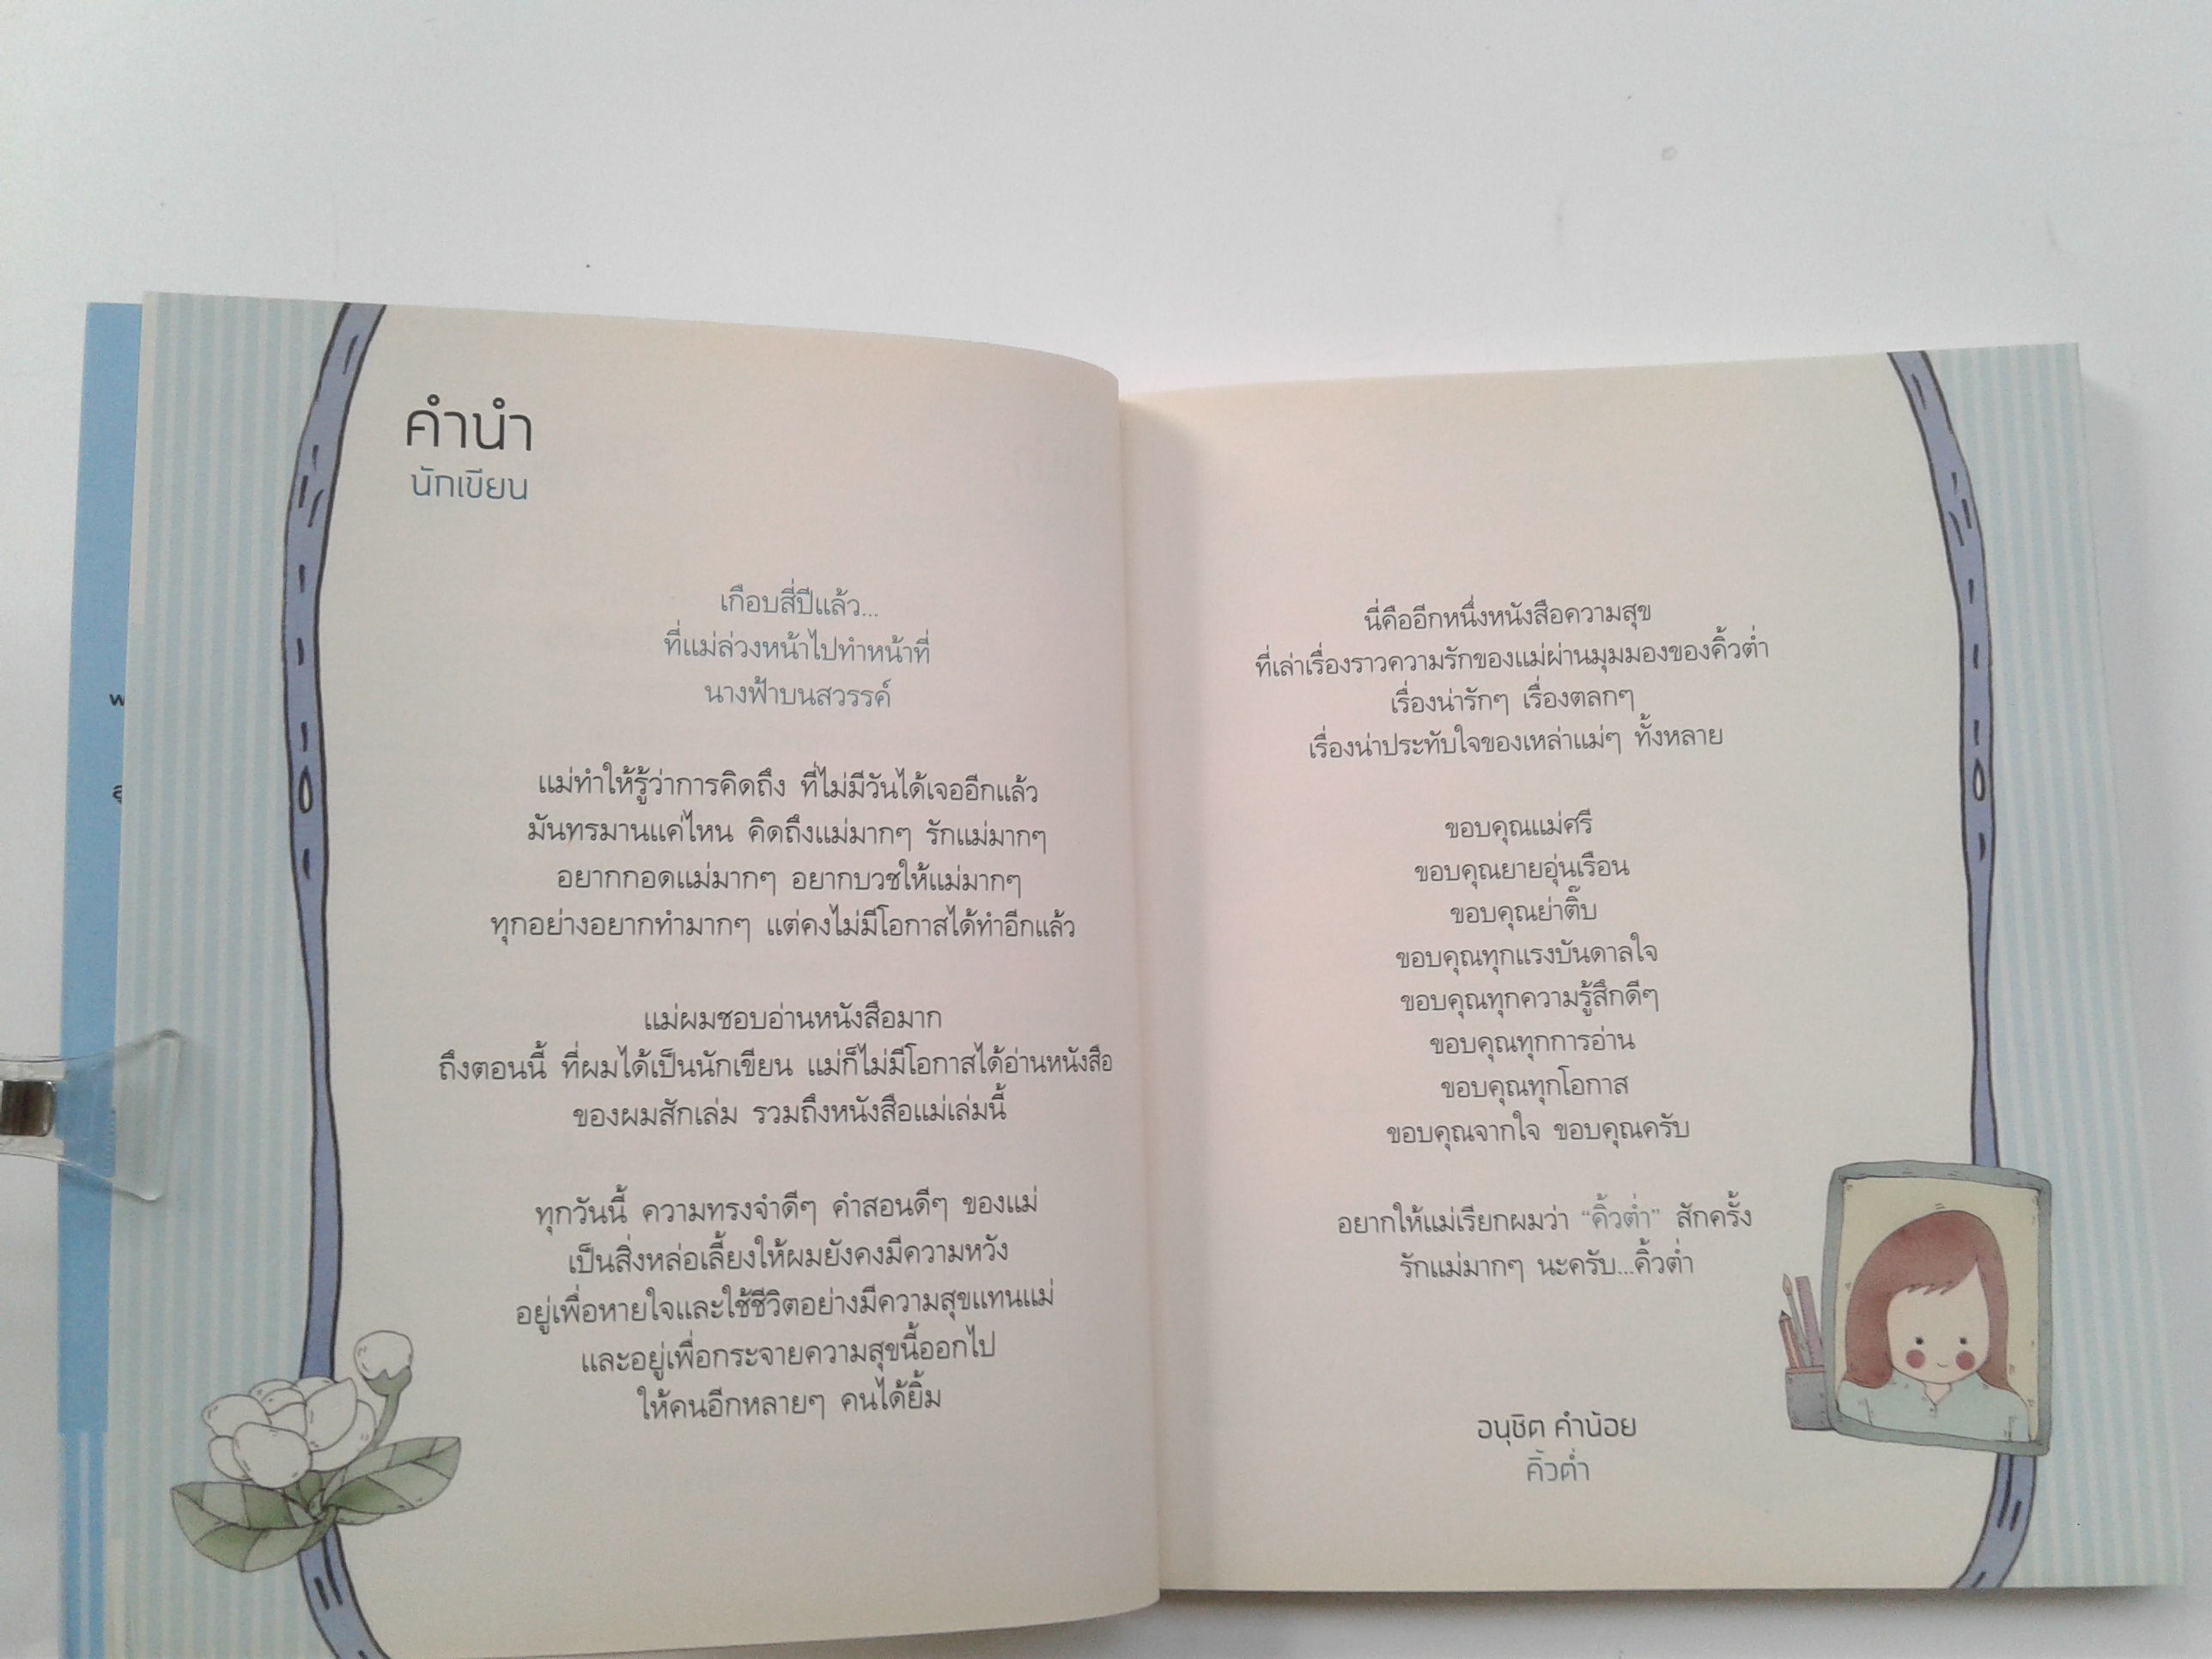 คำนำ
นักเขียน
เกือบสี่ปีแล้ว...
ที่แม่ล่วงหน้าไปทำหน้าที่
นางฟ้าบนสวรรค์
แม่ทำให้รู้ว่าการคิดถึง ที่ไม่มีวันได้เจออีกแล้ว
มันทรมานแค่ไหน คิดถึงแม่มากๆ รักแม่มากๆ
อยากกอดแม่มากๆ อยากบวชให้แม่มากๆ
ทุกอย่างอยากทำมากๆ แต่คงไม่มีโอกาสได้ทำอีกแล้ว
แม่ผมชอบอ่านหนังสือมาก
ถึงตอนนี้ ที่ผมได้เป็นนักเขียน แม่ก็ไม่มีโอกาสได้อ่านหนังสือ
ของผมสักเล่ม รวมถึงหนังสือแม่เล่มนี้
ทุกวันนี้ ความทรงจำดีๆ คำสอนดีๆ ของแม่
เป็นสิ่งหล่อเลี้ยงให้ผมยังคงมีความหวัง
อยู่เพื่อหายใจและใช้ชีวิตอย่างมีความสุขแทนแม่
และอยู่เพื่อกระจายความสุขนี้ออกไป
ให้คนอีกหลายๆ คนได้ยิ้ม
นี่คืออีกหนึ่งหนังสือความสุข
ที่เล่าเรื่องราวความรักของแม่ผ่านมุมมองของคิ้วต่ำ
เรื่องน่ารักๆ เรื่องตลกๆ
เรื่องน่าประทับใจของเหล่าแม่ๆ ทั้งหลาย
ขอบคุณแม่ศรี
ขอบคุณยายอุ่นเรือน
ขอบคุณย่าติ๊บ
ขอบคุณทุกแรงบันดาลใจ
ขอบคุณทุกความรู้สึกดีๆ
ขอบคุณทุกการอ่าน
ขอบคุณทุกโอกาส
ขอบคุณจากใจ ขอบคุณครับ
อยากให้แม่เรียกผมว่า "คิ้วต่ำ" สักครั้ง
รักแม่มากๆ นะครับ...คิ้วต่ำ
อนุชิต คำน้อย
คิ้วต่ำ